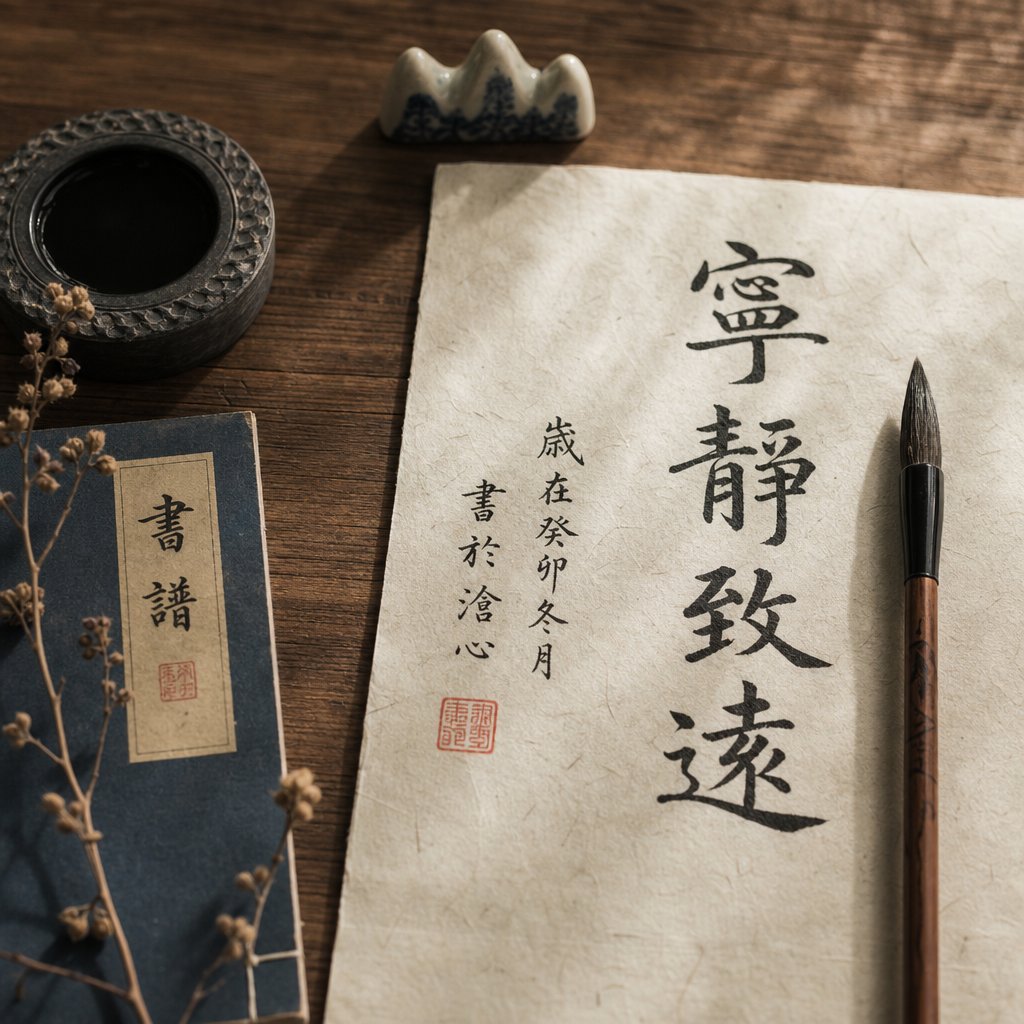 寧靜致遠
歲在癸卯冬月
書於滄心
書譜